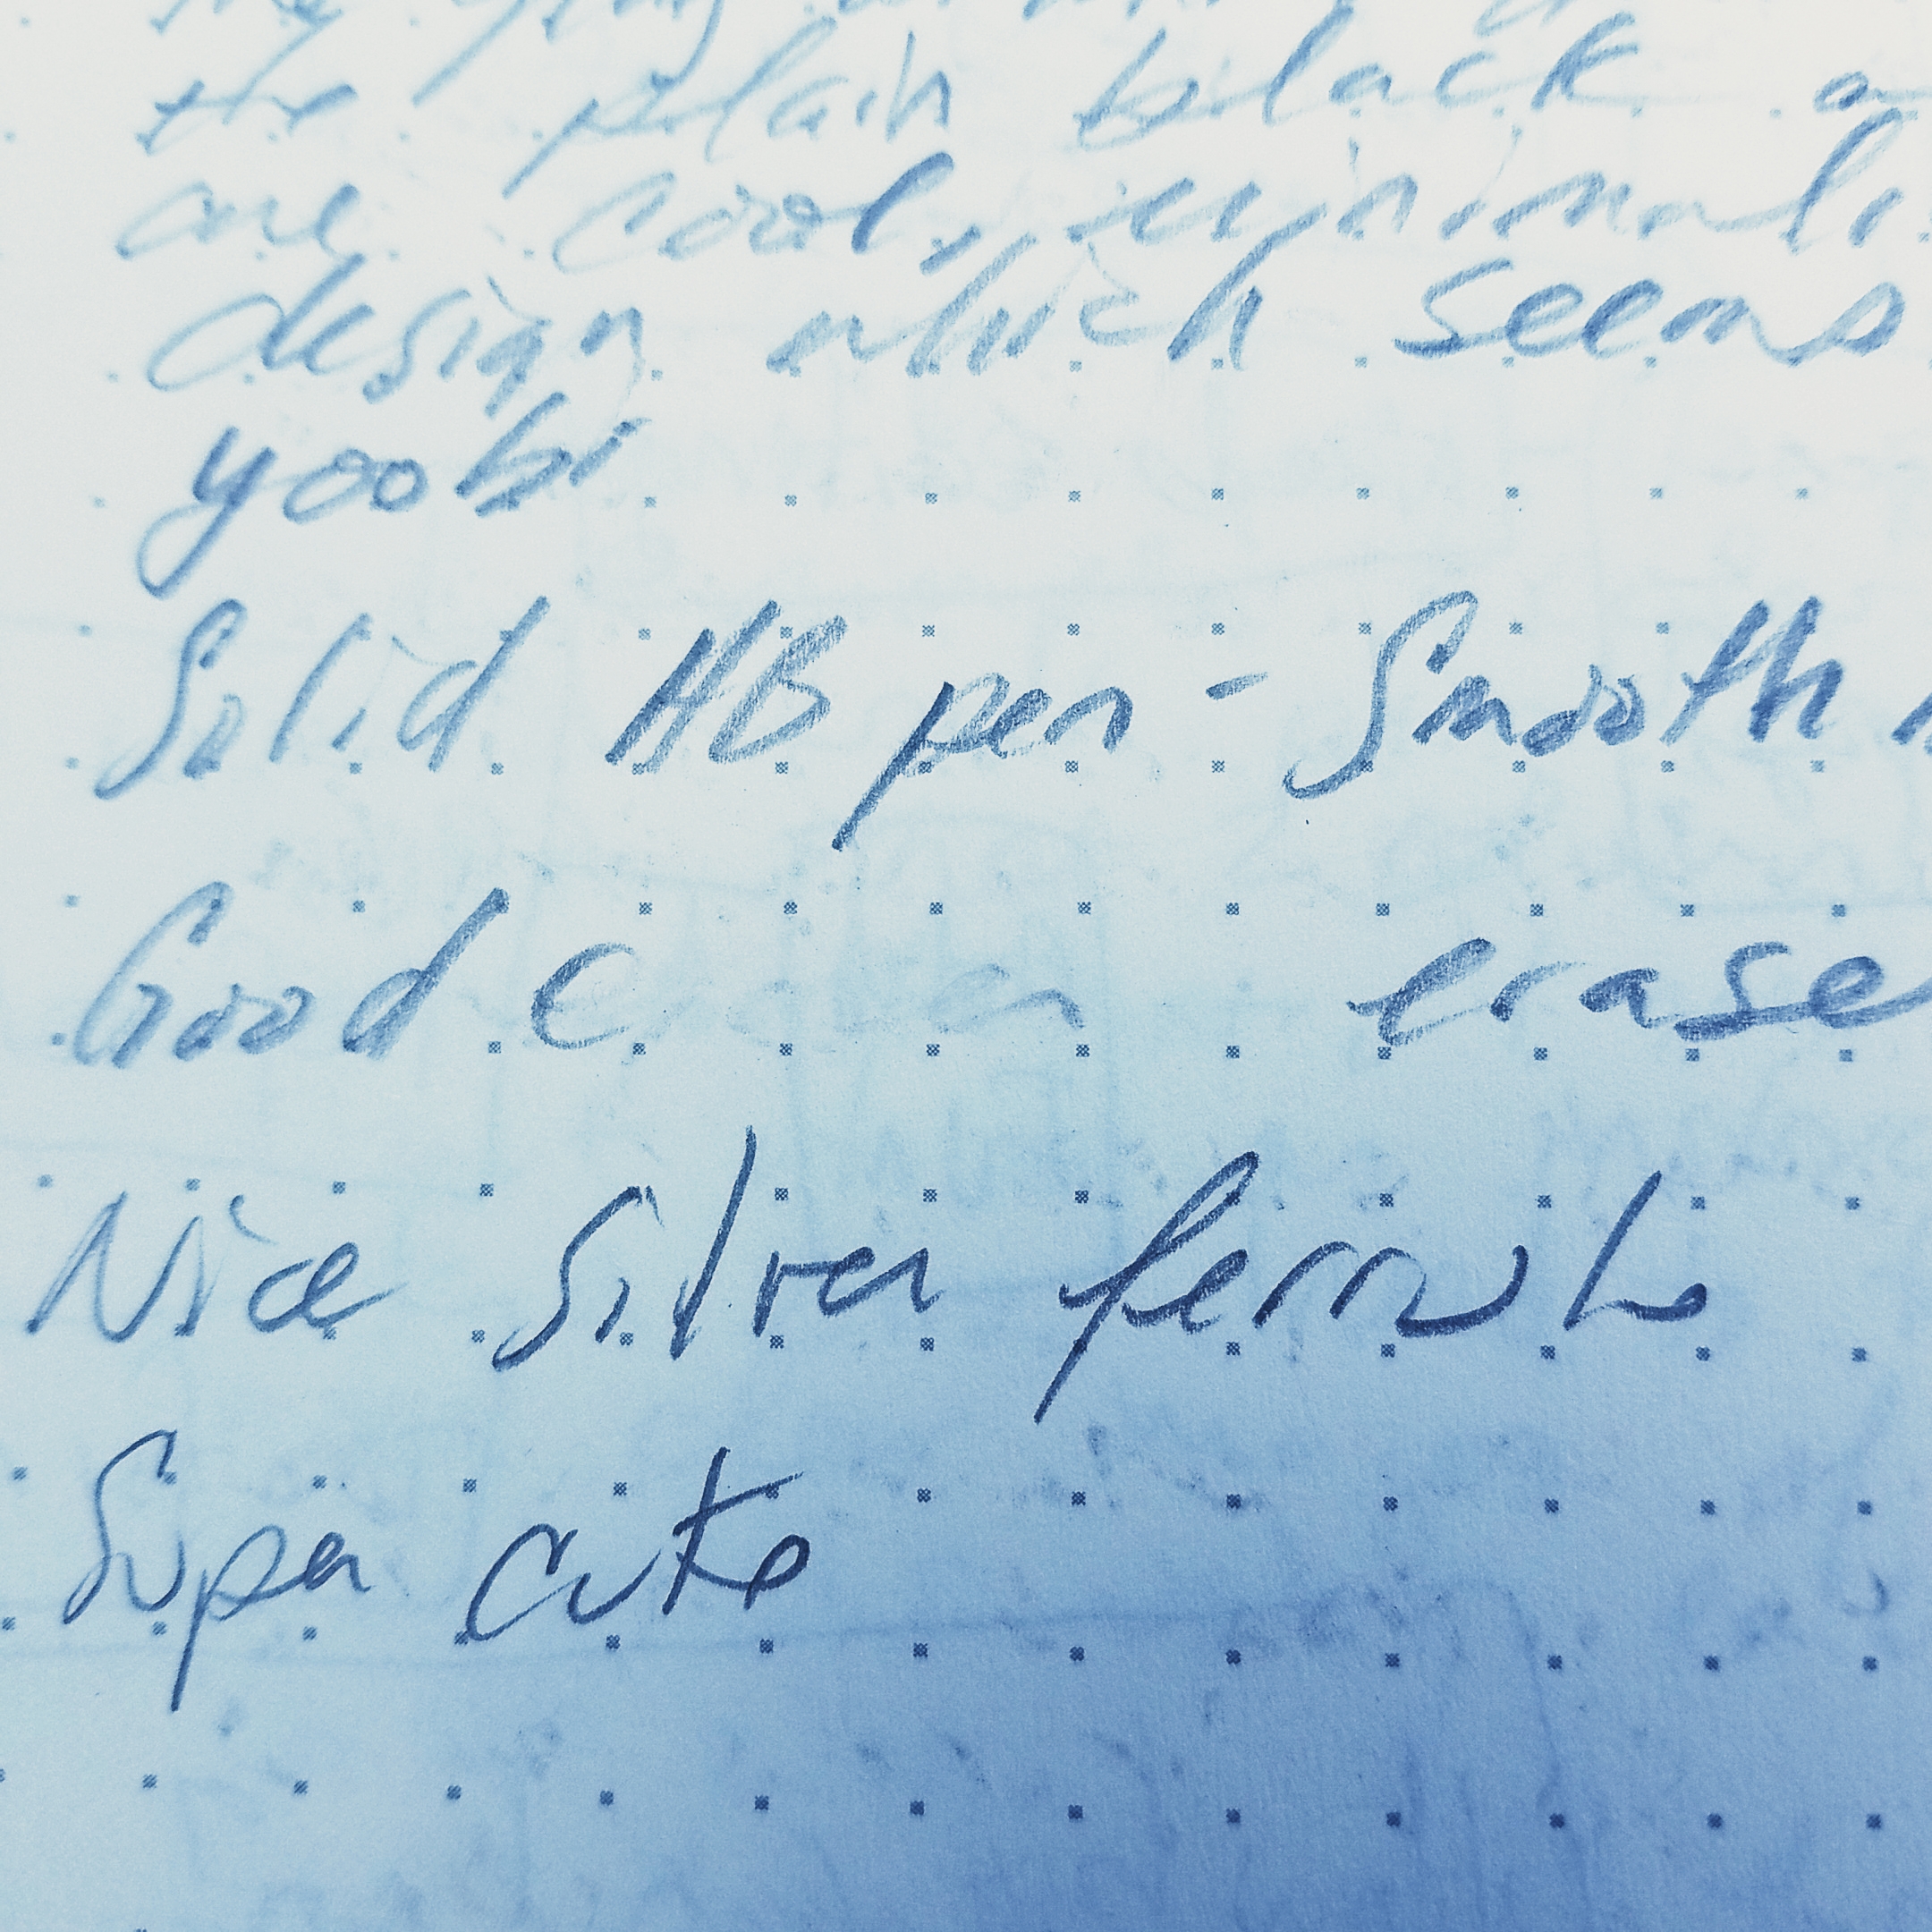 the plain black a
are cool, minimali
design which seems
yoobi
Solid HB pen - Smooth
Good e er erase
Nice Silver ferrule
Super cute